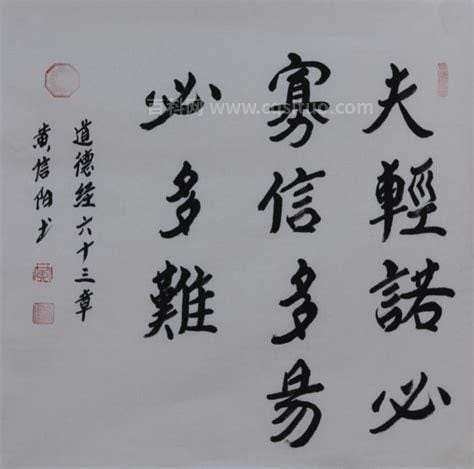 夫輕諾必
寡信多易
必多難
道德经六十三章
黄信阳书
百科网 www.cqsltuo.com